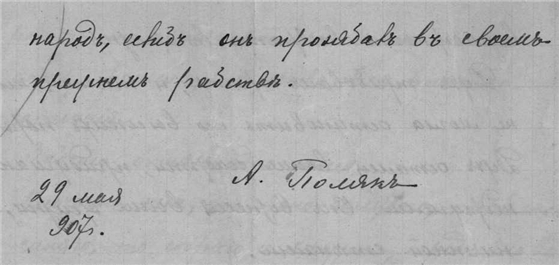 народъ, еслибъ онъ прозябалъ въ своемъ
прежнемъ рабствѣ.
А. Полякъ
29 мая
907г.